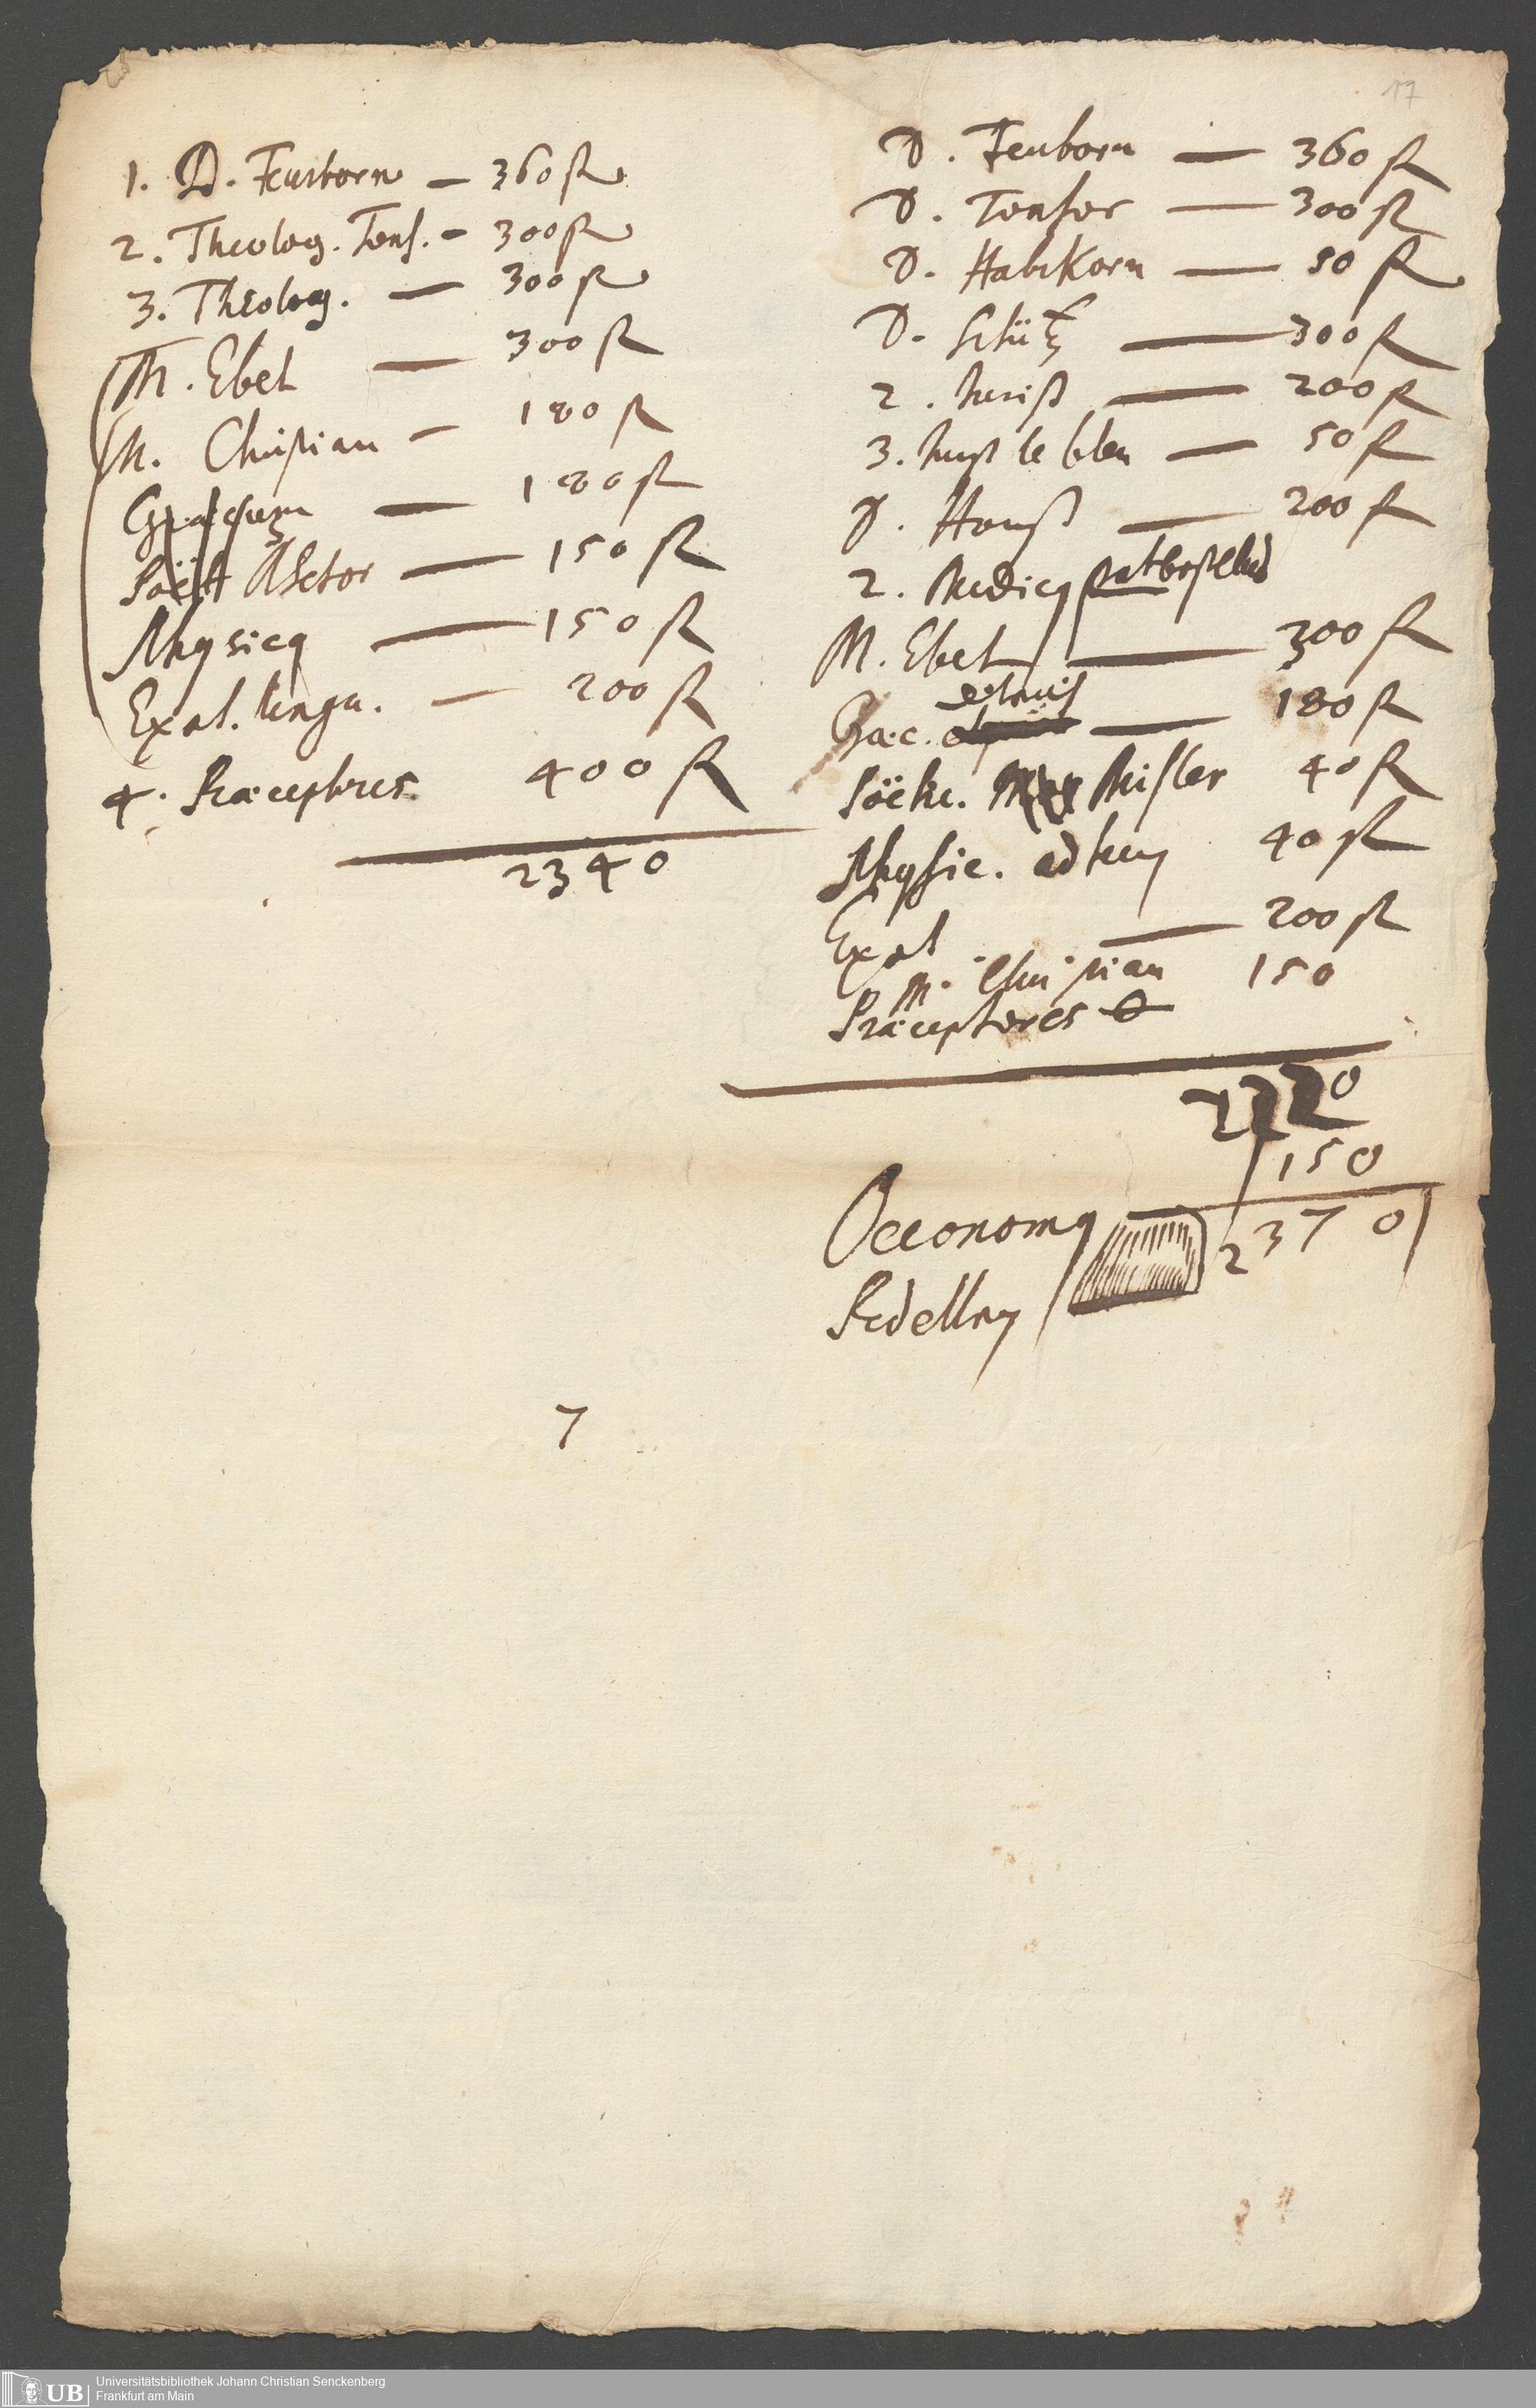 17
1. D. Feurborn — 360 fl
2. Theolog. Tonſ. — 300 fl
3. Theolog. — 300 fl
M. Ebel — 300 fl
M. Chriſtian — 180 fl
Græcum — 180 fl
Poët — 150 fl
Physicq — 150 fl
Exot. lingu. — 200 fl
4. Præceptores 400 fl
2340
D. Feuborn — 360 fl
D. Tonſor — 300 fl
D. Haberkorn — 50 fl
D. Schütz — 300 fl
2. Juriſt — 200 fl
3. — 50 fl
D. Horſt — 200 fl
2. Medicq
M. Ebel — 300 fl
Græc. — 180 fl
Poët. Miſler 40 fl
Phyſic. 40 fl
Exot — 200 fl
M. Chriſtian 150
Præceptores
2220
150
2370
Oeconomq
Pedellen
7
Universitätsbibliothek Johann Christian Senckenberg
Frankfurt am Main
UB